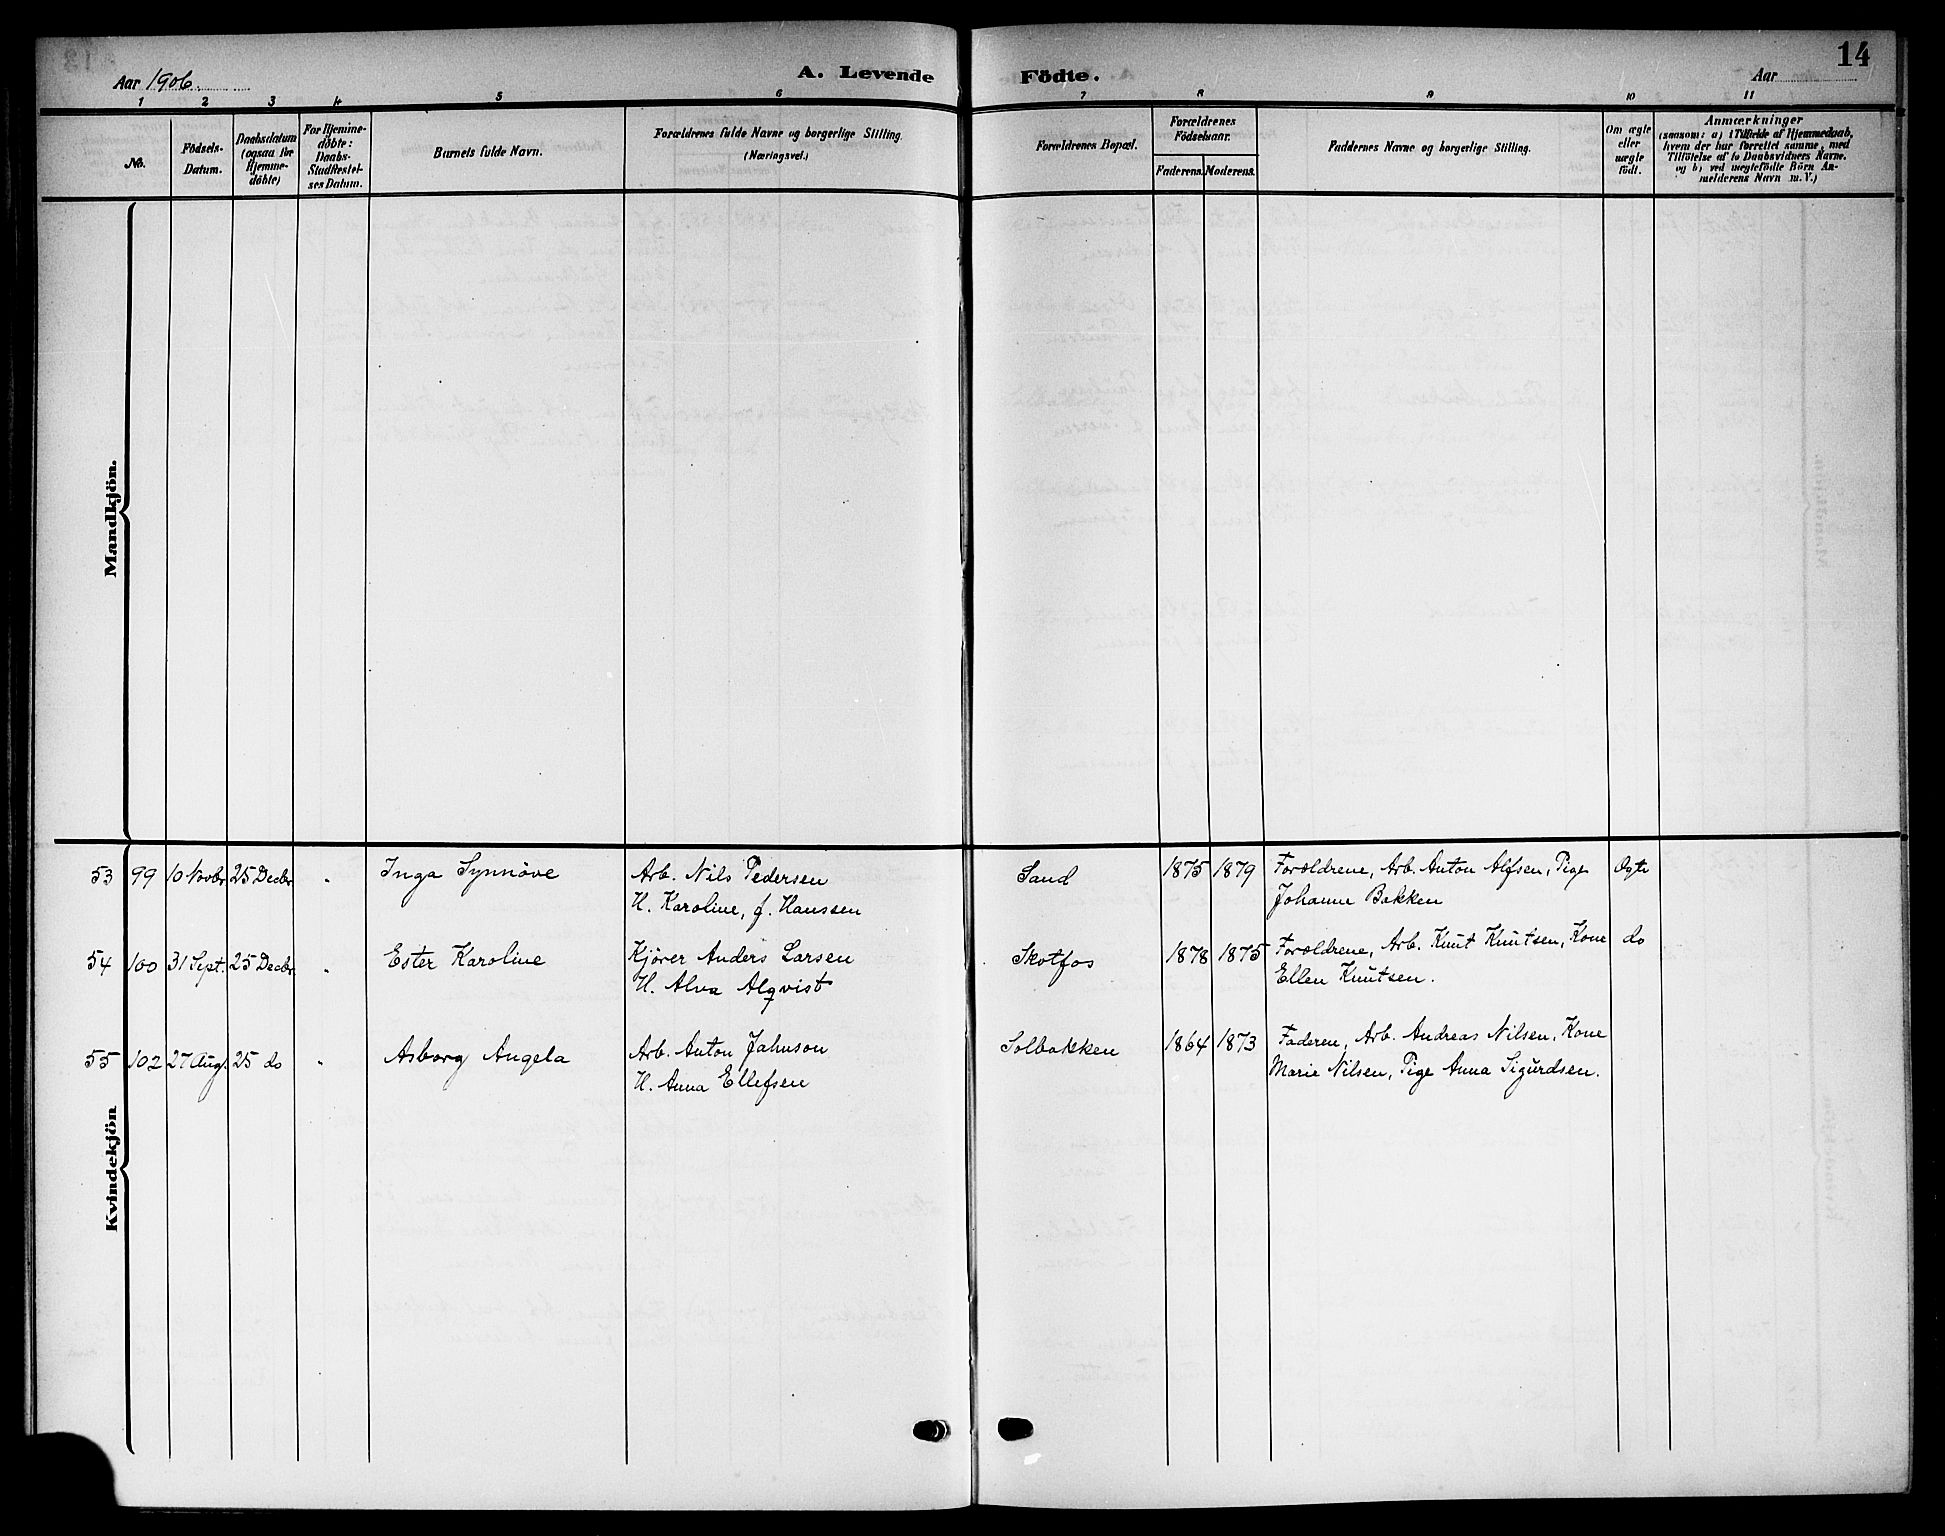 14
Aar 1906.
A. Levende Födte.
Aar
1 2 3 4 5 6 7 8 9 10 11
No.
Födsels-
Datum.
Daabsdatum
(ogsaa for
Hjemme-
döbte)
For Hjemme-
döbte:
Daabs-
Stadfestel-
ses Datum.
Barnets fulde Navn.
Forældrenes fulde Navne og borgerlige Stilling.
(Næringsvei.)
Forældrenes Bopæl.
Forældrenes
Födselsaar.
Faderens. Moderens.
Faddernes Navne og borgerlige Stilling.
Om ægte
eller
uægte
födt.
Anmærkninger
(saasom: a) i Tilfælde af Hjemmedaab,
hvem der har forrettet samme, med
Tilföielse af to Daabsvidners Navne.
og b) ved uegtefödte Börn An-
melderens Navn m. V.)
Mandkjön.
53 99 10 Novbr 25 Decbr. " Inga Synnöve Arb. Nils Pedersen Sand 1875 1879 Forældrene, Arb. Anton Alfsen, Pige Ægte
H. Karoline, f. Hanssen Johanne Bakken
54 100 31 Sept. 25 Decbr. " Ester Karoline Kjörer Anders Larsen Skotfos 1878 1875 Forældrene, Arb. Knut Knutsen, Kone do
H. Alva Alqvist Ellen Knutsen.
55 102 27 Aug. 25 do " Asborg Angela Arb. Anton Jahnson Solbakken 1864 1873 Faderen, Arb. Andreas Nilsen, Kone
H. Anna Ellefsen Marie Nilsen, Pige Anna Sigurdsen.
Kvindekjön